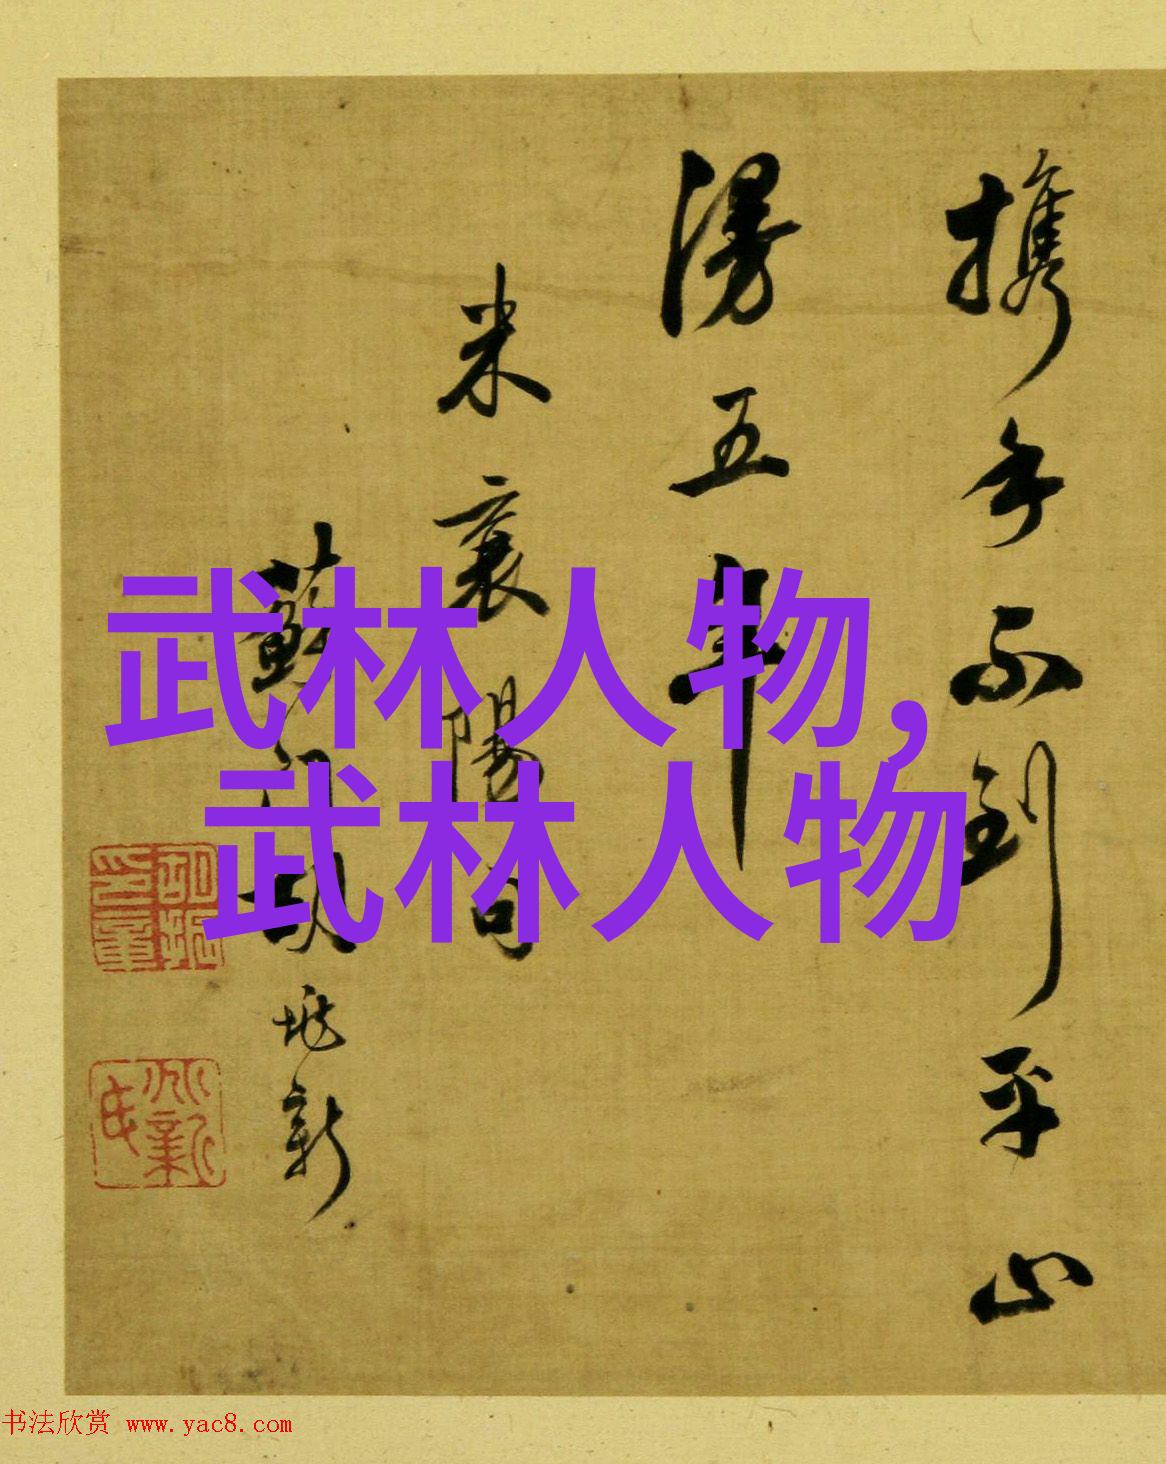 携手不到平山
漫五年
米襄陽句
蘇
新
武林人物,
武林人物
书法欣赏 www.yac8.com